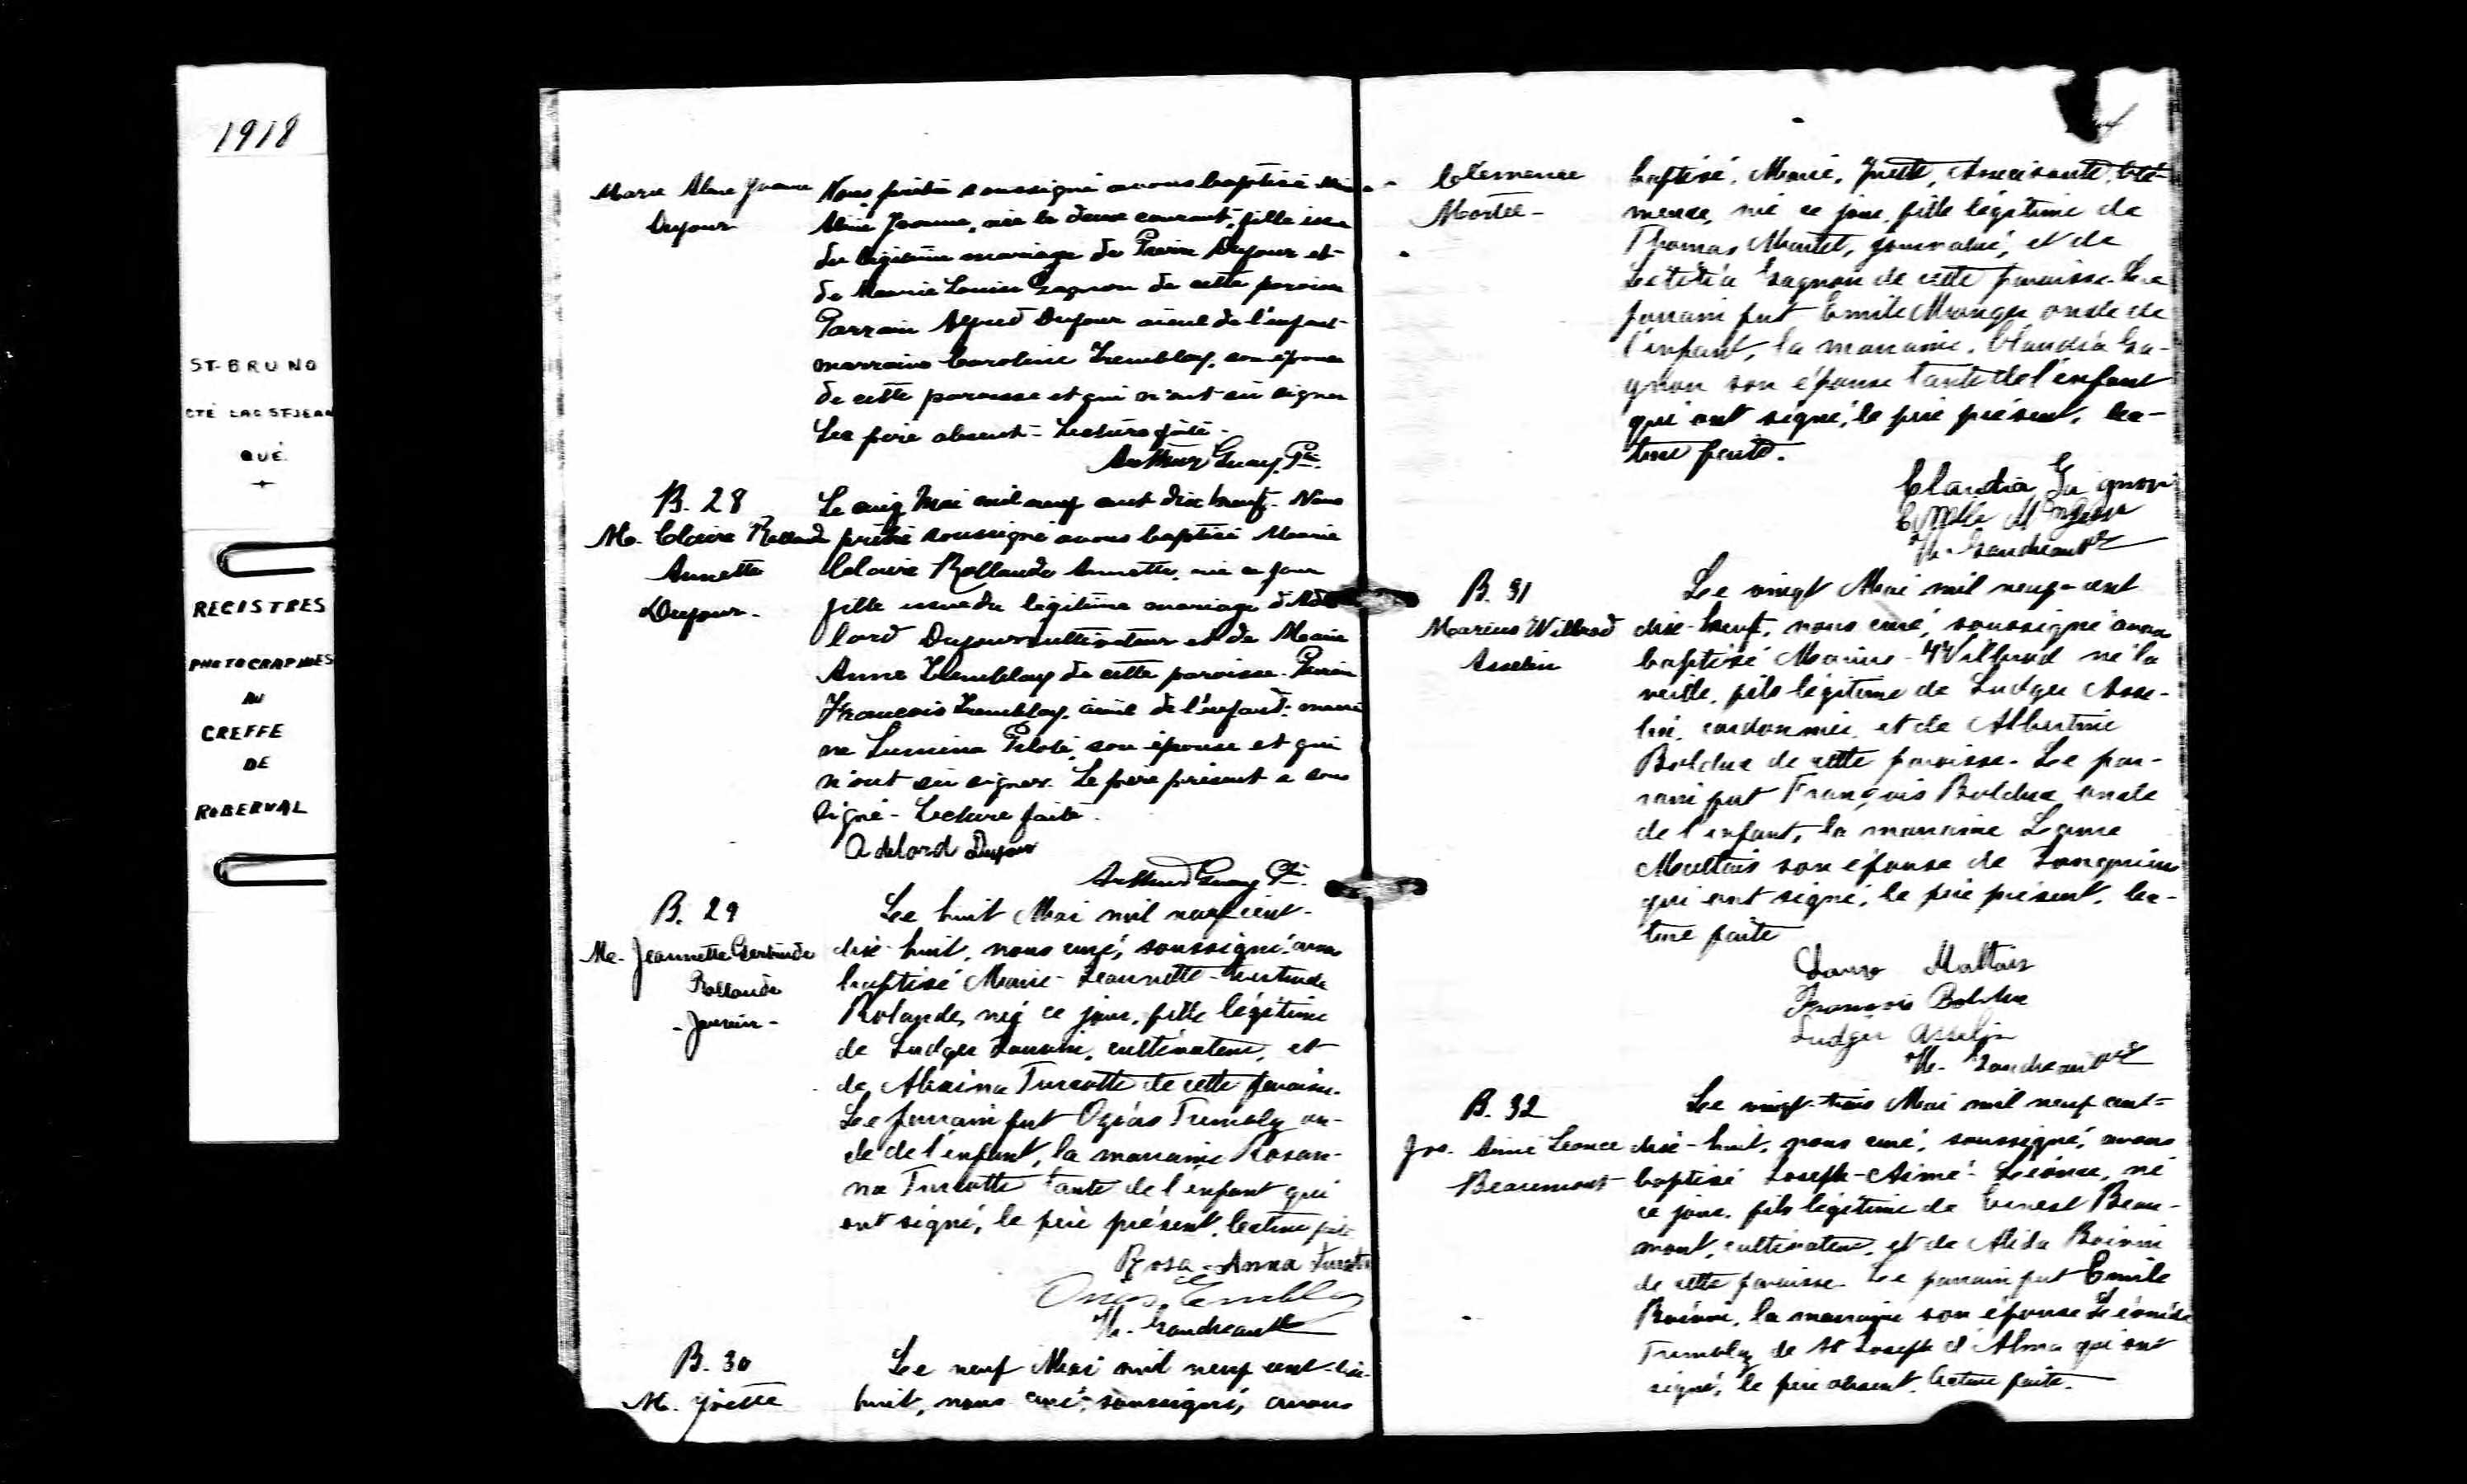 1918
ST-BRUNO
CTÉ LAC ST-JEAN
QUÉ.
REGISTRES
PHOTOGRAPHIÉS
AU
GREFFE
DE
ROBERVAL
Marie Aline Yvonne
Dufour
Nous prêtre soussigné avons baptisé Marie
Aline Yvonne, née le deux courant, fille issue
du légitime mariage de Pierre Dufour et
de Marie Louise Gagnon de cette paroisse
Parrain Alfred Dufour aïeul de l'enfant
marraine Caroline Tremblay, son épouse
de cette paroisse et qui n'ont su signer
Le père absent - Lecture faite -
Arthur Guay Ptre.
B. 28
M. Claire Rollande
Annette
Dufour -
Le cinq Mai mil neuf cent dix huit. Nous
prêtre soussigné avons baptisé Marie
Claire Rollande Annette, née ce jour
fille issue du légitime mariage d'Adé
lard Dufour cultivateur et de Marie
Anne Tremblay de cette paroisse. Parrain
François Tremblay, aïeul de l'enfant, marrai
ne Lumina Pilote, son épouse et qui
n'ont su signer. Le père présent a sous
signé - Lecture faite.
Adelard Dufour
Arthur Guay Ptre.
B. 29
Me. Jeannette Gertrude
Rollande
- Janvier -
Le huit Mai mil neuf cent-
dix-huit, nous curé, soussigné avons
baptisé Marie-Jeannette-Gertrude
Rolande, née ce jour, fille légitime
de Ludger cultivateur, et
de Turcotte de cette paroisse.
Le parrain fut Ozias Trembly on-
cle de l'enfant, la marraine Rosan-
na Turcotte tante de l'enfant qui
ont signé, le père présent, lecture faite
Rosa-Anna Turcotte
Th. Gaudreault
B. 30
M. Yvette
Le neuf Mai mil neuf cent-dix-
huit, nous curé, soussigné, avons
Clémence
Martel -
baptisé, Marie, Yvette, Clé-
mence, née ce jour, fille légitime de
Thomas Martel, journalier, et de
Letitia Gagnon de cette paroisse. Le
parrain fut Emile Munger oncle de
l'enfant, la marraine, Claudia Ga-
gnon son épouse tante de l'enfant
qui ont signé, le père présent, lec-
ture faite.
Claudia Gagnon
Emile Munger
Th. Gaudreault
B. 31
Marius Willbrod
Asselin
Le vingt Mai mil neuf-cent
dix-huit, nous curé, soussigné avons
baptisé Marius-Wilbrod né la
veille, fils légitime de Ludger Asse-
lin, cordonnier, et de Albertine
Bolduc de cette paroisse. Le par-
rain fut François Bolduc oncle
de l'enfant, la marraine
Maltais son épouse de Jonquière
qui ont signé, le père présent, lec-
ture faite
Maltais
François Bolduc
Ludger Asselin
Th. Gaudreault
B. 32
Jos. Aimé Léonce
Beaumont
Le vingt-trois Mai mil neuf cent-
dix-huit, nous curé, soussigné, avons
baptisé Joseph-Aimé-Léonce, né
ce jour, fils légitime de Ernest Beau-
mont, cultivateur, et de Alida Boivin
de cette paroisse. Le parrain fut Emile
Boivin, la marraine son épouse
Tremblay de St Joseph d'Alma qui ont
signé, le père absent. lecture faite.